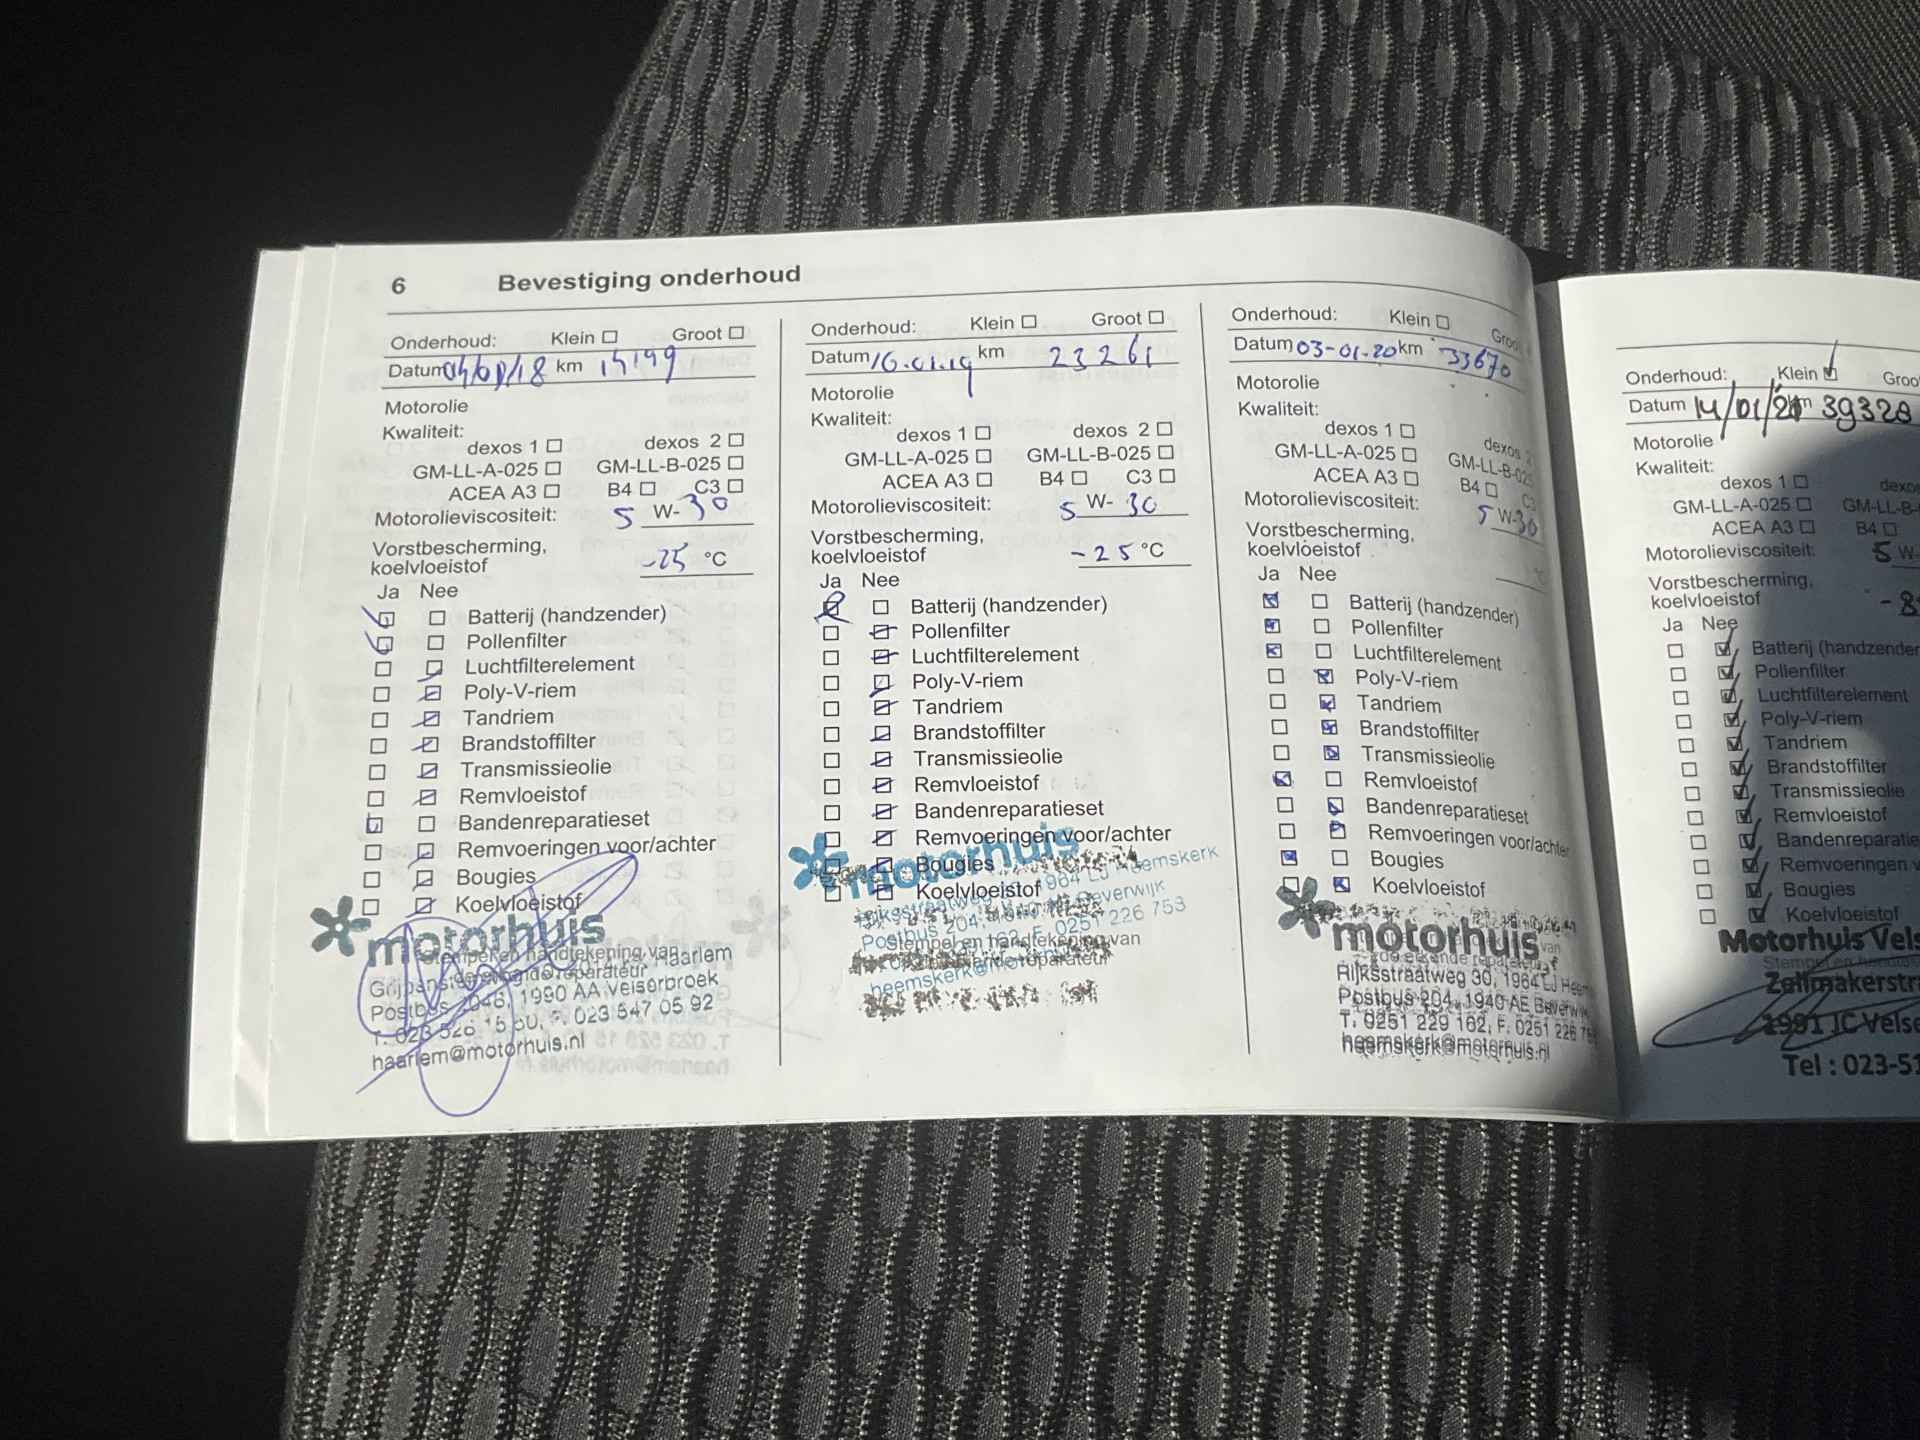 6 Bevestiging onderhoud
Onderhoud: Klein Groot
Datum km
Motorolie
Kwaliteit:
dexos 1 dexos 2
GM-LL-A-025 GM-LL-B-025
ACEA A3 B4 C3
Motorolieviscositeit: 5 W- 30
Vorstbescherming,
koelvloeistof -25 °C
Ja Nee
Batterij (handzender)
Pollenfilter
Luchtfilterelement
Poly-V-riem
Tandriem
Brandstoffilter
Transmissieolie
Remvloeistof
Bandenreparatieset
Remvoeringen voor/achter
Bougies
Koelvloeistof
motorhuis
Stempel en handtekening van
Haarlem
Postbus 2046, 1990 AA Velserbroek
T. 023 547 05 92
haarlem@motorhuis.nl
Onderhoud: Klein Groot
Datum 16.01.19 km 23261
Motorolie
Kwaliteit:
dexos 1 dexos 2
GM-LL-A-025 GM-LL-B-025
ACEA A3 B4 C3
Motorolieviscositeit: 5 W- 30
Vorstbescherming,
koelvloeistof -25 °C
Ja Nee
Batterij (handzender)
Pollenfilter
Luchtfilterelement
Poly-V-riem
Tandriem
Brandstoffilter
Transmissieolie
Remvloeistof
Bandenreparatieset
Remvoeringen voor/achter
Bougies
Koelvloeistof
motorhuis
Rijksstraatweg 1964 LJ Heemskerk
Postbus 204, Beverwijk
F. 0251 226 753
Stempel en handtekening van
Onderhoud: Klein
Datum 03-01-20 km 33670
Motorolie
Kwaliteit:
dexos 1 dexos 2
GM-LL-A-025 GM-LL-B-025
ACEA A3 B4 C3
Motorolieviscositeit: 5 W-30
Vorstbescherming,
koelvloeistof °C
Ja Nee
Batterij (handzender)
Pollenfilter
Luchtfilterelement
Poly-V-riem
Tandriem
Brandstoffilter
Transmissieolie
Remvloeistof
Bandenreparatieset
Remvoeringen voor/achter
Bougies
Koelvloeistof
motorhuis
Rijksstraatweg 30, 1964 LJ Heem
Postbus 204, 1940 AE Beverwijk
T. 0251 229 162, F. 0251 226 75
heemskerk@motorhuis.nl
Onderhoud: Klein Groo
Datum 14/01/21 km 39328
Motorolie
Kwaliteit:
dexos 1 dexos
GM-LL-A-025 GM-LL-B-
ACEA A3 B4
Motorolieviscositeit: 5 W-
Vorstbescherming,
koelvloeistof
Ja Nee
Batterij (handzender
Pollenfilter
Luchtfilterelement
Poly-V-riem
Tandriem
Brandstoffilter
Transmissieolie
Remvloeistof
Bandenreparatie
Remvoeringen v
Bougies
Koelvloeistof
Motorhuis Vels
Zeilmakerstra
1991 JC Velse
Tel : 023-51